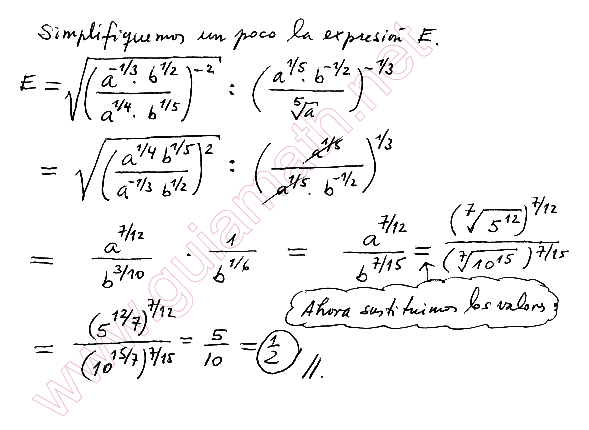 Simplifiquemos un poco la expresión E.
E = √((a^-1/3 · b^1/2)/(a^1/4 · b^1/5))^-2 : ((a^1/5 · b^-1/2)/⁵√a)^-1/3
= √((a^1/4 b^1/5)/(a^-1/3 b^1/2))^2 : (a^1/5/(a^1/5 · b^-1/2))^1/3
= a^7/12/b^3/10 · 1/b^1/6 = a^7/12/b^7/15 = (⁷√5^12)^7/12/(⁷√10^15)^7/15
Ahora sustituimos los valores:
= (5^12/7)^7/12/(10^15/7)^7/15 = 5/10 = 1/2 //.
www.guiamath.net